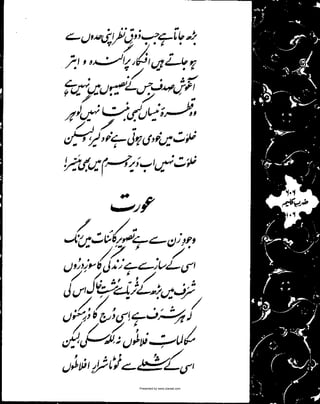 بڑھ جاتا ہے جب ذوقِ نظر اپنی حدوں سے
ہو جاتے ہیں افکار پراگندہ و ابتر
آغوشِ صدف جس کے نصیبوں میں نہیں ہے
وہ قطرۂ نیساں کبھی بنتا نہیں گوہر
خلوت میں خودی ہوتی ہے خودگیر و لیکن
خلوت نہیں اب دیر و حرم میں بھی میسر!
عورت
وجودِ زن سے ہے تصویرِ کائنات میں رنگ
اسی کے ساز سے ہے زندگی کا سوزِ دروں
شرف میں بڑھ کے ثریا سے مشتِ خاک اس کی
کہ ہر شرف ہے اسی درج کا درِ مکنوں
مکالماتِ فلاطوں نہ لکھ سکی لیکن
اسی کے شعلے سے ٹوٹا شرارِ افلاطوں
۶۰۶
ضربِ کلیم
۱۰۶
Presented by